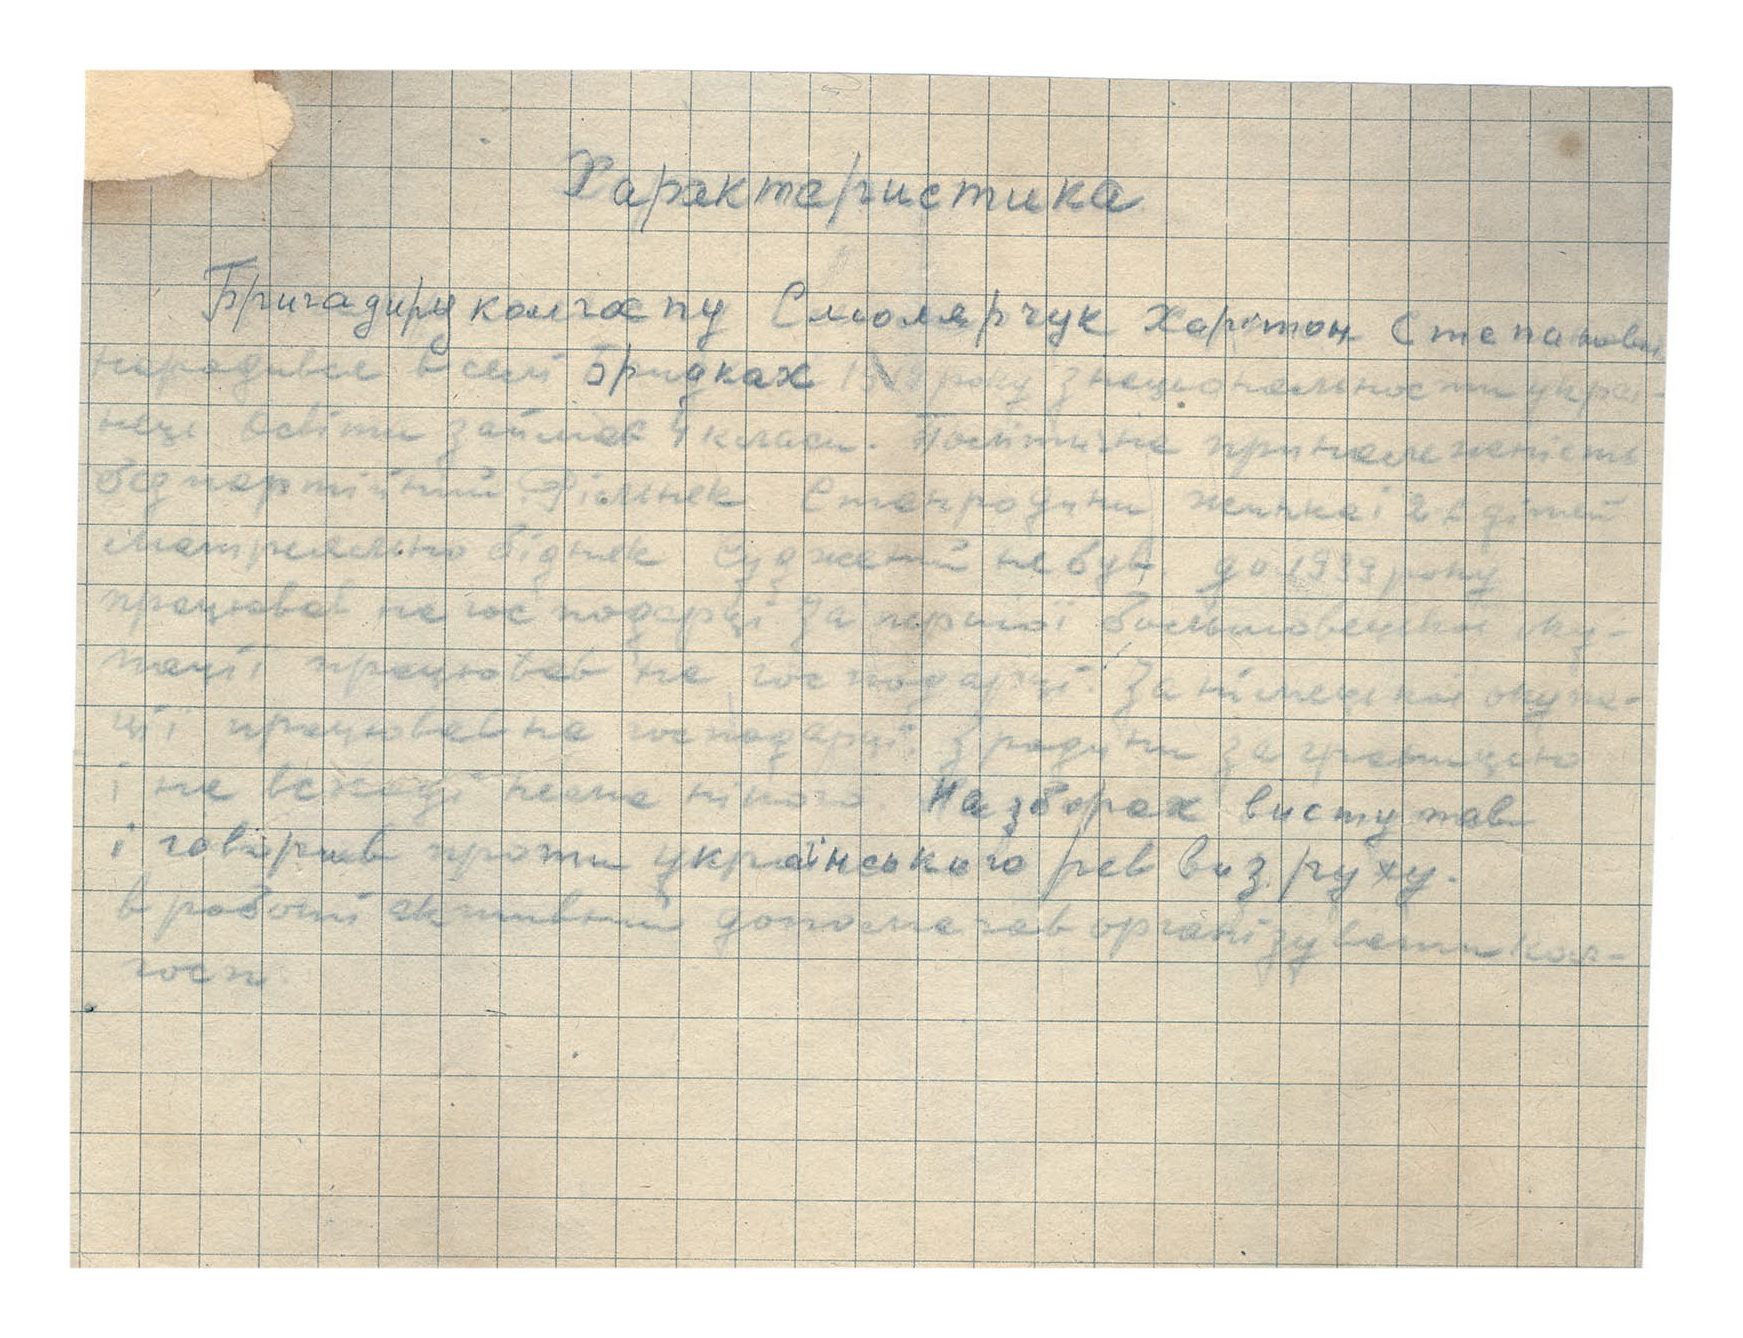 Характеристика
Бригадиру колгоспу Смолярчук Харітон Степанович
народився в селі Бридках року з національности украї-
нець освіти займає 4 класи. Політична приналежність
безпартійний. Рільник Стан родини жінка і 2є дітей
Матріяльно бідняк Суджений не був. до 1939 року
працював на господарці За першої большовецької оку-
пації працював на господарці. За німецької окупа-
ції працював на господарці. З родини за границею
і на всході нема нікого. На зборах виступав
і говорив проти українського рев виз. руху.
в роботі активний допомагав організувати кол-
госп.